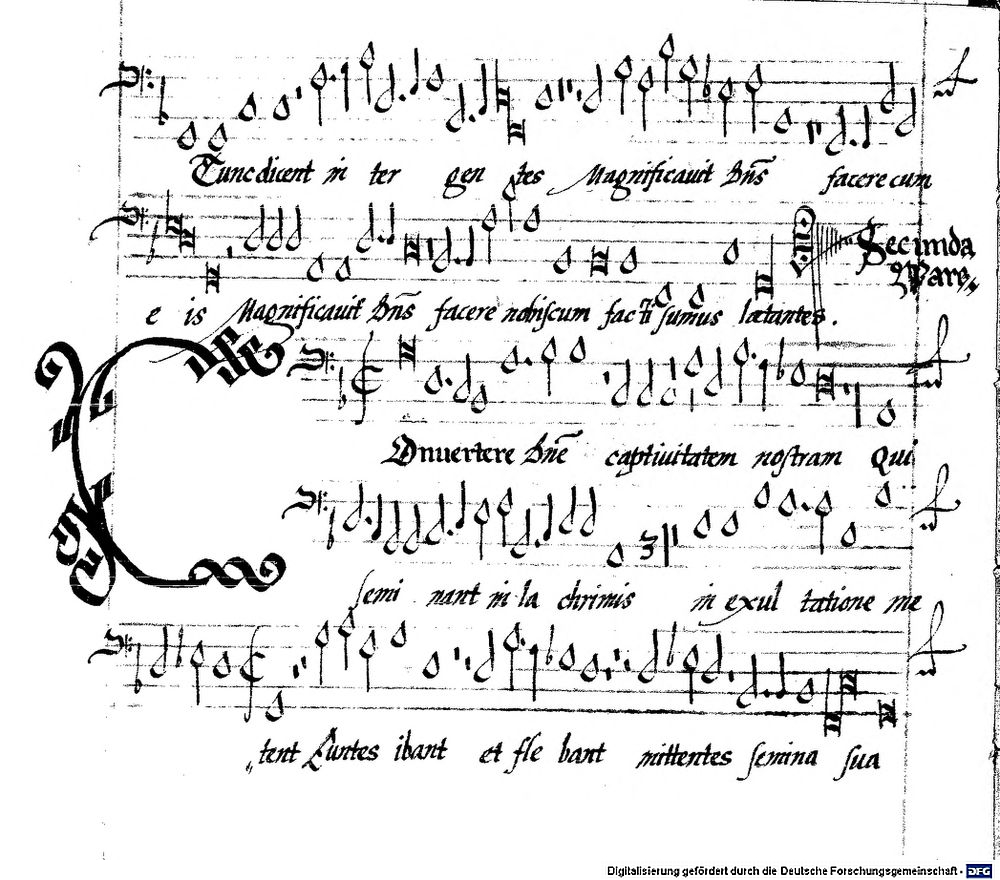 Tunc dicent in ter gen tes Magnificauit Dñs facere cum
e is Magnificauit Dñs facere nobiscum facti sumus lætantes.
Secunda
Pars
COnuertere Dñe captiuitatem nostram Qui
semi nant in la chrimis in exul tatione me
tent Euntes ibant et fle bant mittentes semina sua
Digitalisierung gefördert durch die Deutsche Forschungsgemeinschaft - DFG